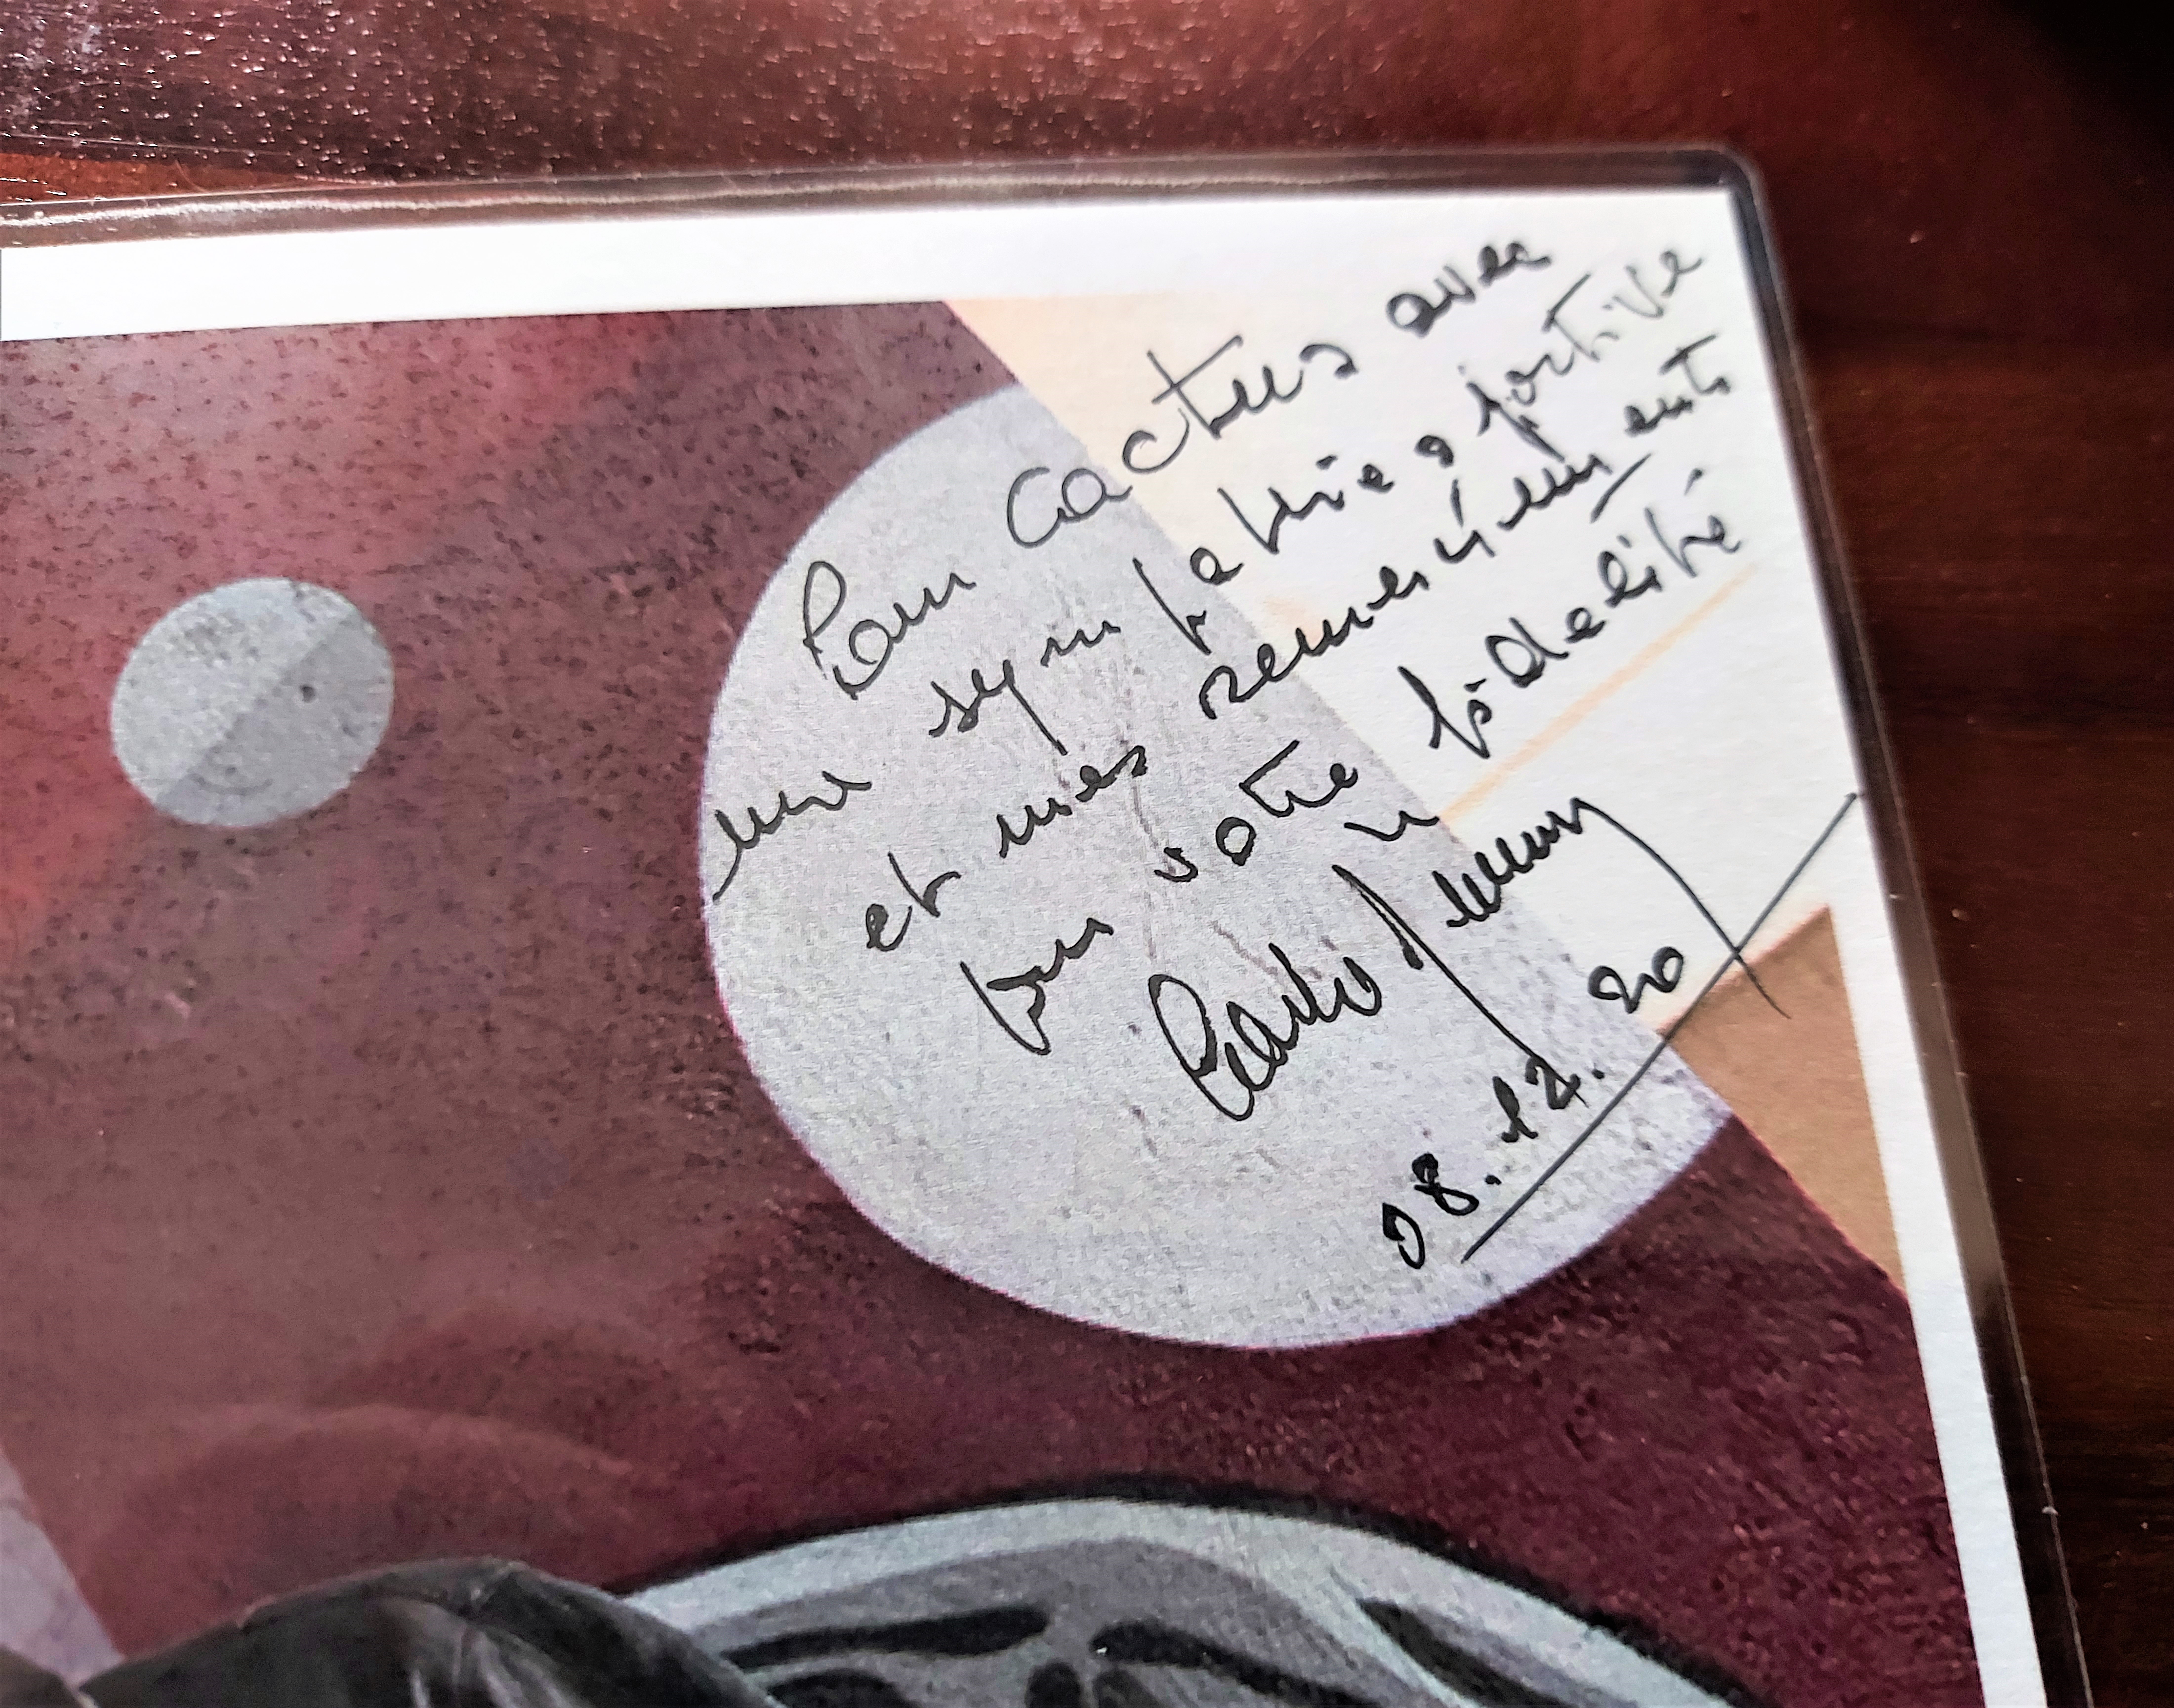 Pour Cactus avec
une sympathie sportive
et mes remerciements
pour votre fidelité
08.12.20